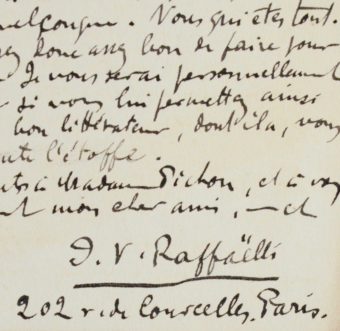 quelconque. Vous qui êtes tout.
donc assez bon de faire pour
Je vous serai personnellement
si vous lui permettez ainsi
bon littérateur, dont il a, vous
toute l'étoffe.
à Madame Pichon, et à vous
mon cher ami, — et
J. V. Raffaëlli
202 r. de Courcelles. Paris.